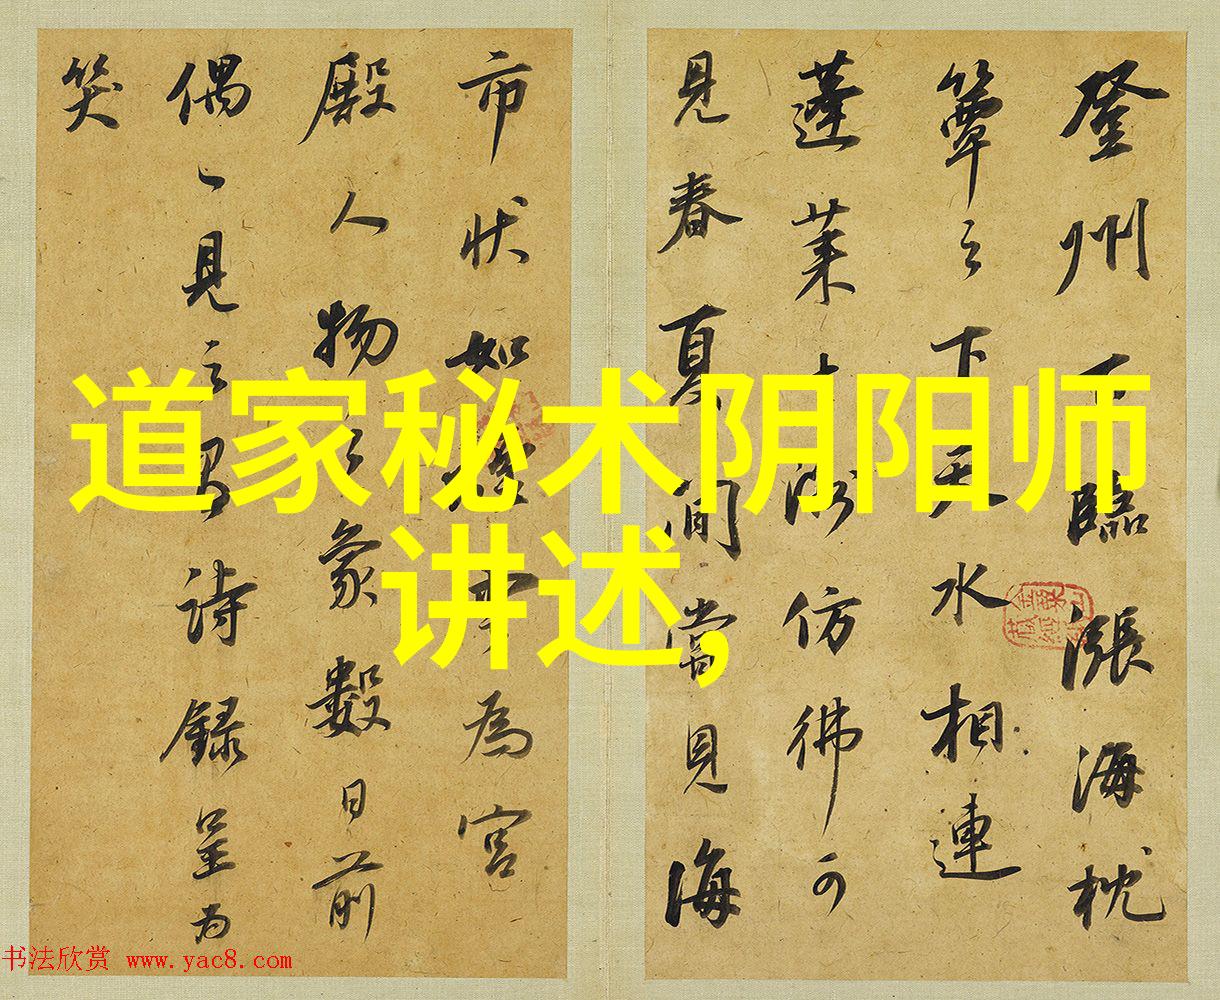 登州下臨漲海枕
簟之下天水相連
蓬萊
仿彿可
見春夏間當見海
市狀如
為宮
殿人物
象數日前
偶〻見之寫詩錄呈為
笑
道家秘术阴阳师
讲述,
书法欣赏 www.yac8.com